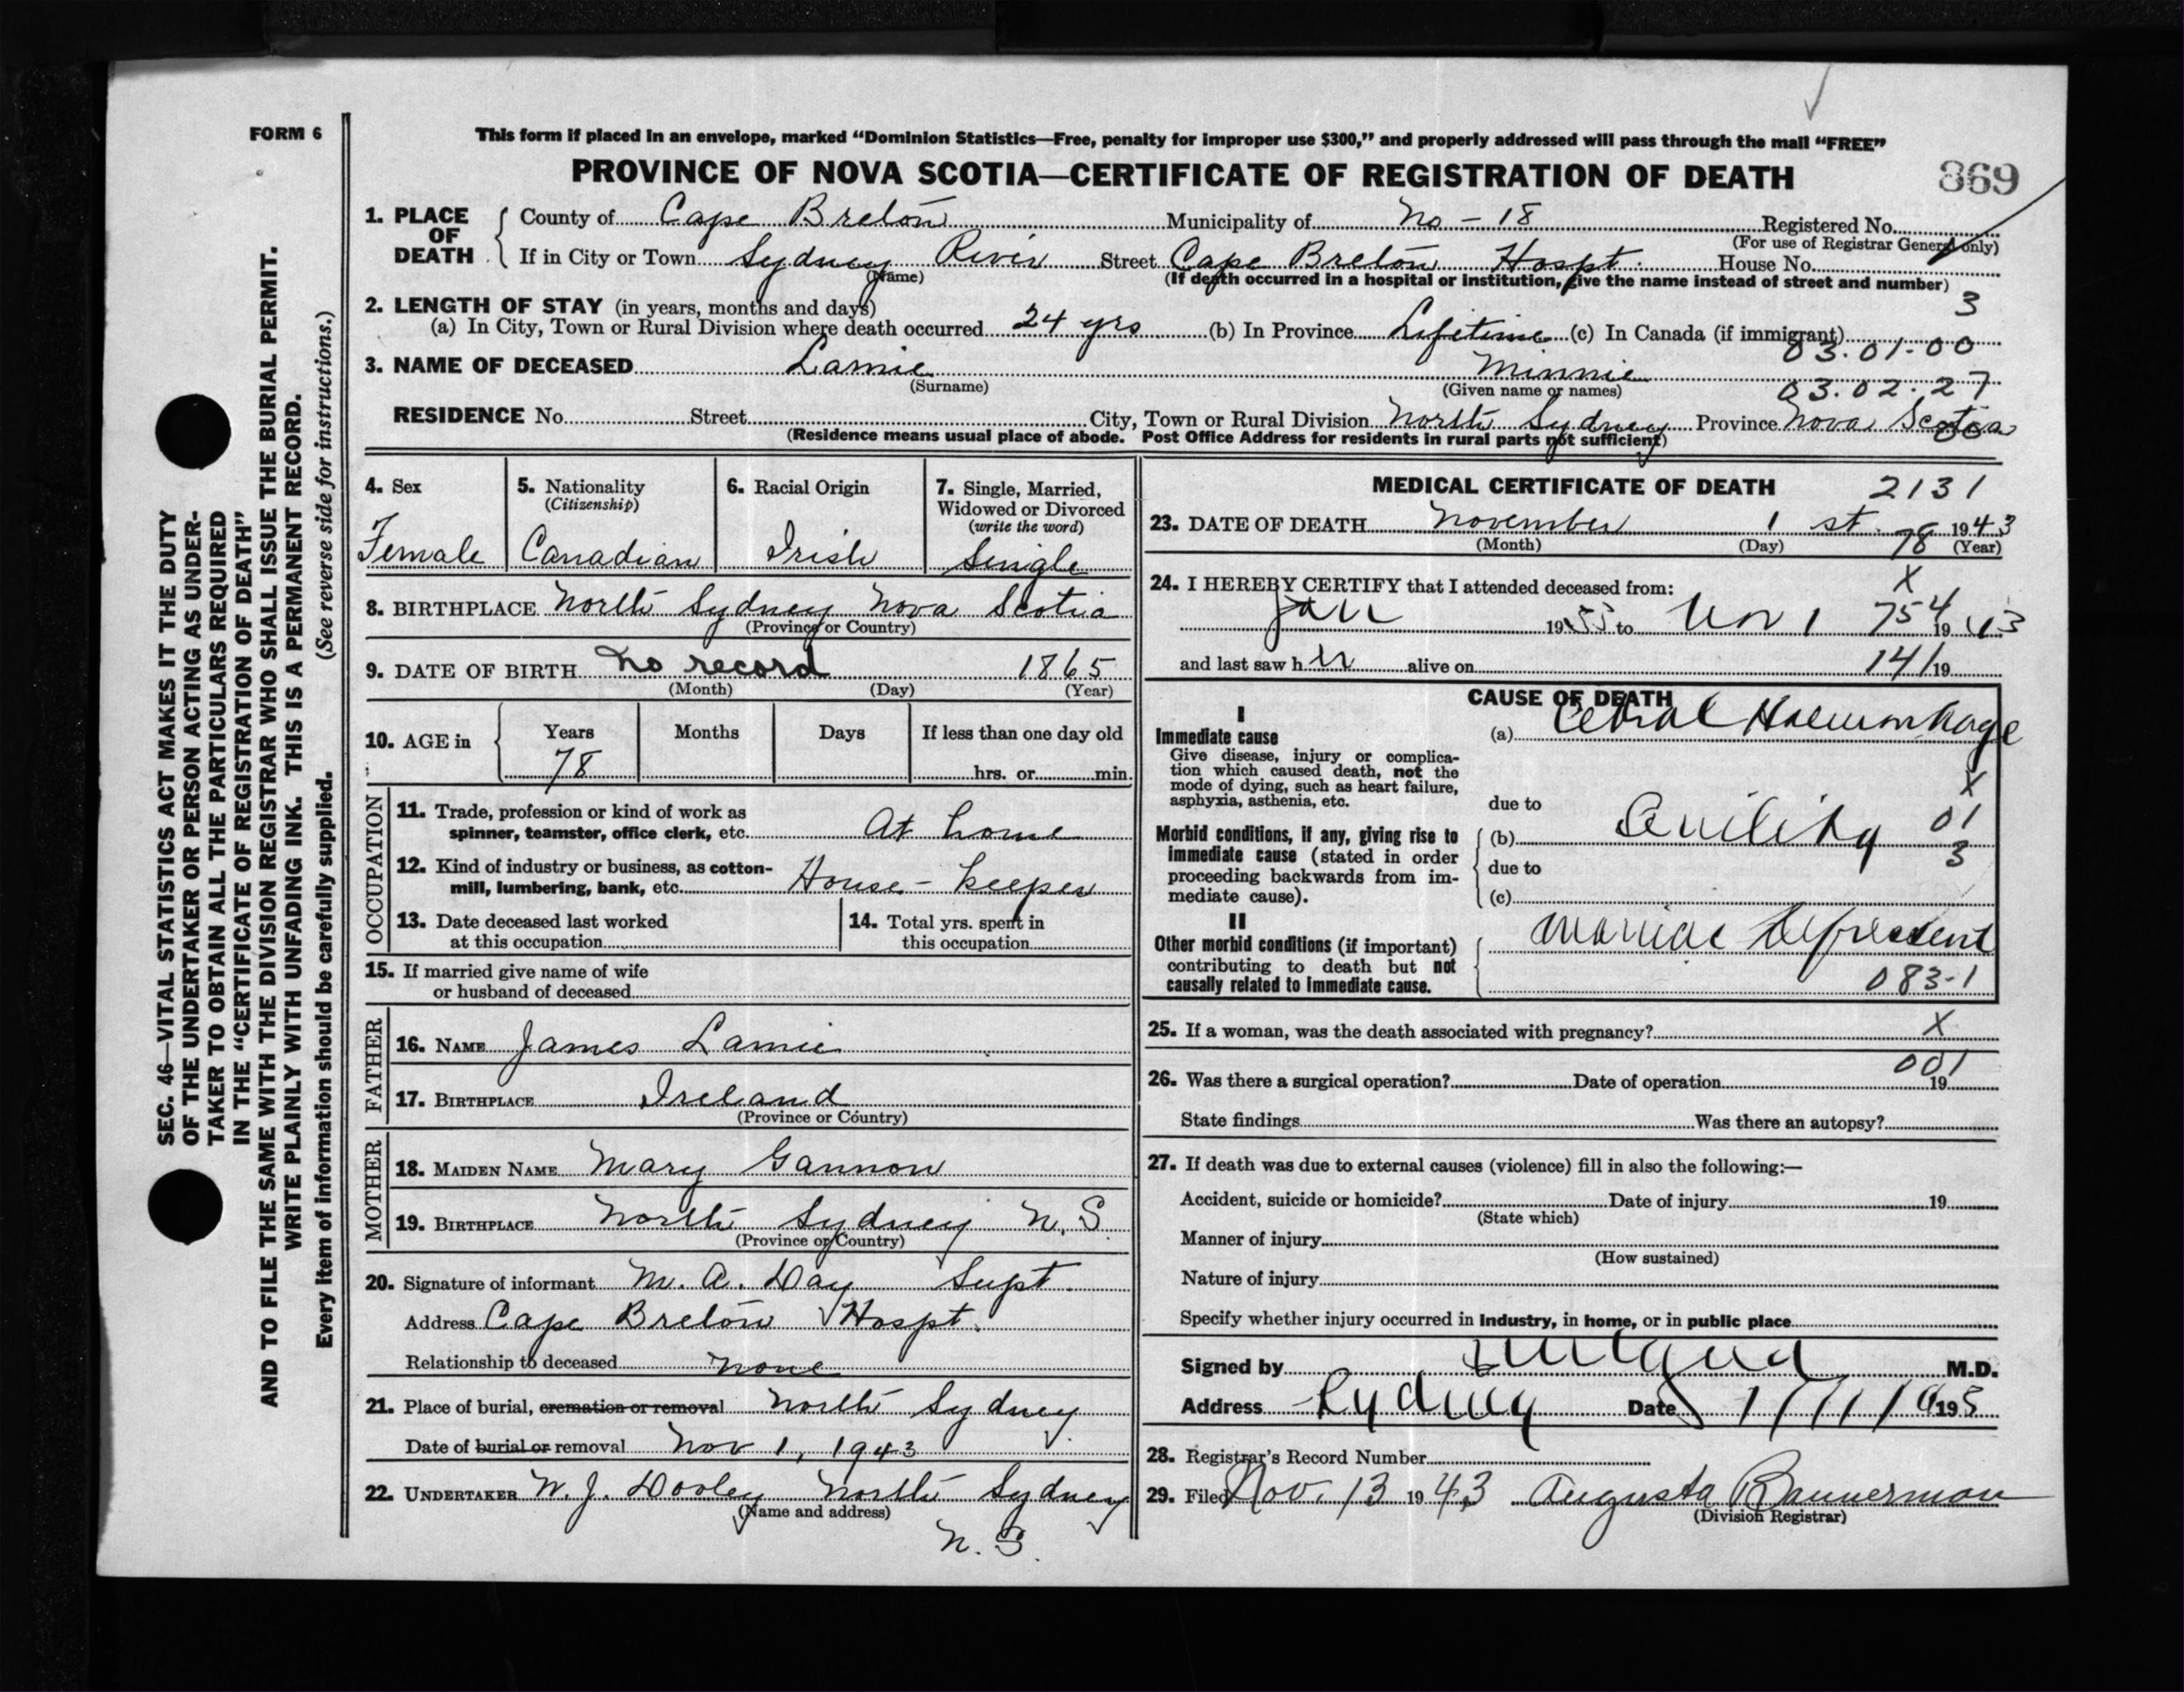 FORM 6
This form if placed in an envelope, marked “Dominion Statistics—Free, penalty for improper use $300,” and properly addressed will pass through the mail “FREE”
PROVINCE OF NOVA SCOTIA—CERTIFICATE OF REGISTRATION OF DEATH
869
1. PLACE OF DEATH
County of Cape Breton Municipality of No - 18 Registered No.
(For use of Registrar General only)
If in City or Town Sydney River Street Cape Breton Hospt. House No.
(Name) (If death occurred in a hospital or institution, give the name instead of street and number)
2. LENGTH OF STAY (in years, months and days) 3
(a) In City, Town or Rural Division where death occurred 24 yrs (b) In Province Lifetime (c) In Canada (if immigrant)
03.01-00
3. NAME OF DECEASED Lamie Minnie
(Surname) (Given name or names) 03.02.27
RESIDENCE No. Street City, Town or Rural Division North Sydney Province Nova Scotia
(Residence means usual place of abode. Post Office Address for residents in rural parts not sufficient)
4. Sex Female
5. Nationality (Citizenship) Canadian
6. Racial Origin Irish
7. Single, Married, Widowed or Divorced (write the word) Single
8. BIRTHPLACE North Sydney Nova Scotia
(Province or Country)
9. DATE OF BIRTH no record 1865
(Month) (Day) (Year)
10. AGE in Years Months Days If less than one day old
78 hrs. or min.
OCCUPATION
11. Trade, profession or kind of work as
spinner, teamster, office clerk, etc. At home
12. Kind of industry or business, as cotton-
mill, lumbering, bank, etc. House-keeper
13. Date deceased last worked
at this occupation
14. Total yrs. spent in
this occupation
15. If married give name of wife
or husband of deceased
FATHER
16. NAME James Lamie
17. BIRTHPLACE Ireland
(Province or Country)
MOTHER
18. MAIDEN NAME Mary Gannon
19. BIRTHPLACE North Sydney N.S
(Province or Country)
20. Signature of informant M. A. Day Supt.
Address Cape Breton Hospt.
Relationship to deceased none
21. Place of burial, cremation or removal North Sydney
Date of burial or removal Nov 1, 1943
22. UNDERTAKER W. J. Dooley North Sydney
(Name and address)
N. S.
MEDICAL CERTIFICATE OF DEATH 2131
23. DATE OF DEATH November 1 st. 1943
(Month) (Day) 78 (Year)
24. I HEREBY CERTIFY that I attended deceased from: X
Jan 19 to Nov 1 754 1943
and last saw h er alive on 141 19
CAUSE OF DEATH
I
Immediate cause
Give disease, injury or complica-
tion which caused death, not the
mode of dying, such as heart failure,
asphyxia, asthenia, etc.
(a) Cebral Haemorrhage
X
due to
Morbid conditions, if any, giving rise to
immediate cause (stated in order
proceeding backwards from im-
mediate cause).
(b) Senility 01
due to 3
(c)
II
Other morbid conditions (if important)
contributing to death but not
causally related to immediate cause.
Maniac Depressent
083-1
25. If a woman, was the death associated with pregnancy? X
001
26. Was there a surgical operation? Date of operation 19
State findings Was there an autopsy?
27. If death was due to external causes (violence) fill in also the following:—
Accident, suicide or homicide? Date of injury 19
(State which)
Manner of injury
(How sustained)
Nature of injury
Specify whether injury occurred in industry, in home, or in public place
Signed by M.D.
Address Sydney Date
28. Registrar's Record Number
29. Filed Nov. 13 1943 Augusta Bannerman
(Division Registrar)
SEC. 46—VITAL STATISTICS ACT MAKES IT THE DUTY
OF THE UNDERTAKER OR PERSON ACTING AS UNDER-
TAKER TO OBTAIN ALL THE PARTICULARS REQUIRED
IN THE “CERTIFICATE OF REGISTRATION OF DEATH”
AND TO FILE THE SAME WITH THE DIVISION REGISTRAR WHO SHALL ISSUE THE BURIAL PERMIT.
WRITE PLAINLY WITH UNFADING INK. THIS IS A PERMANENT RECORD.
Every item of information should be carefully supplied. (See reverse side for instructions.)